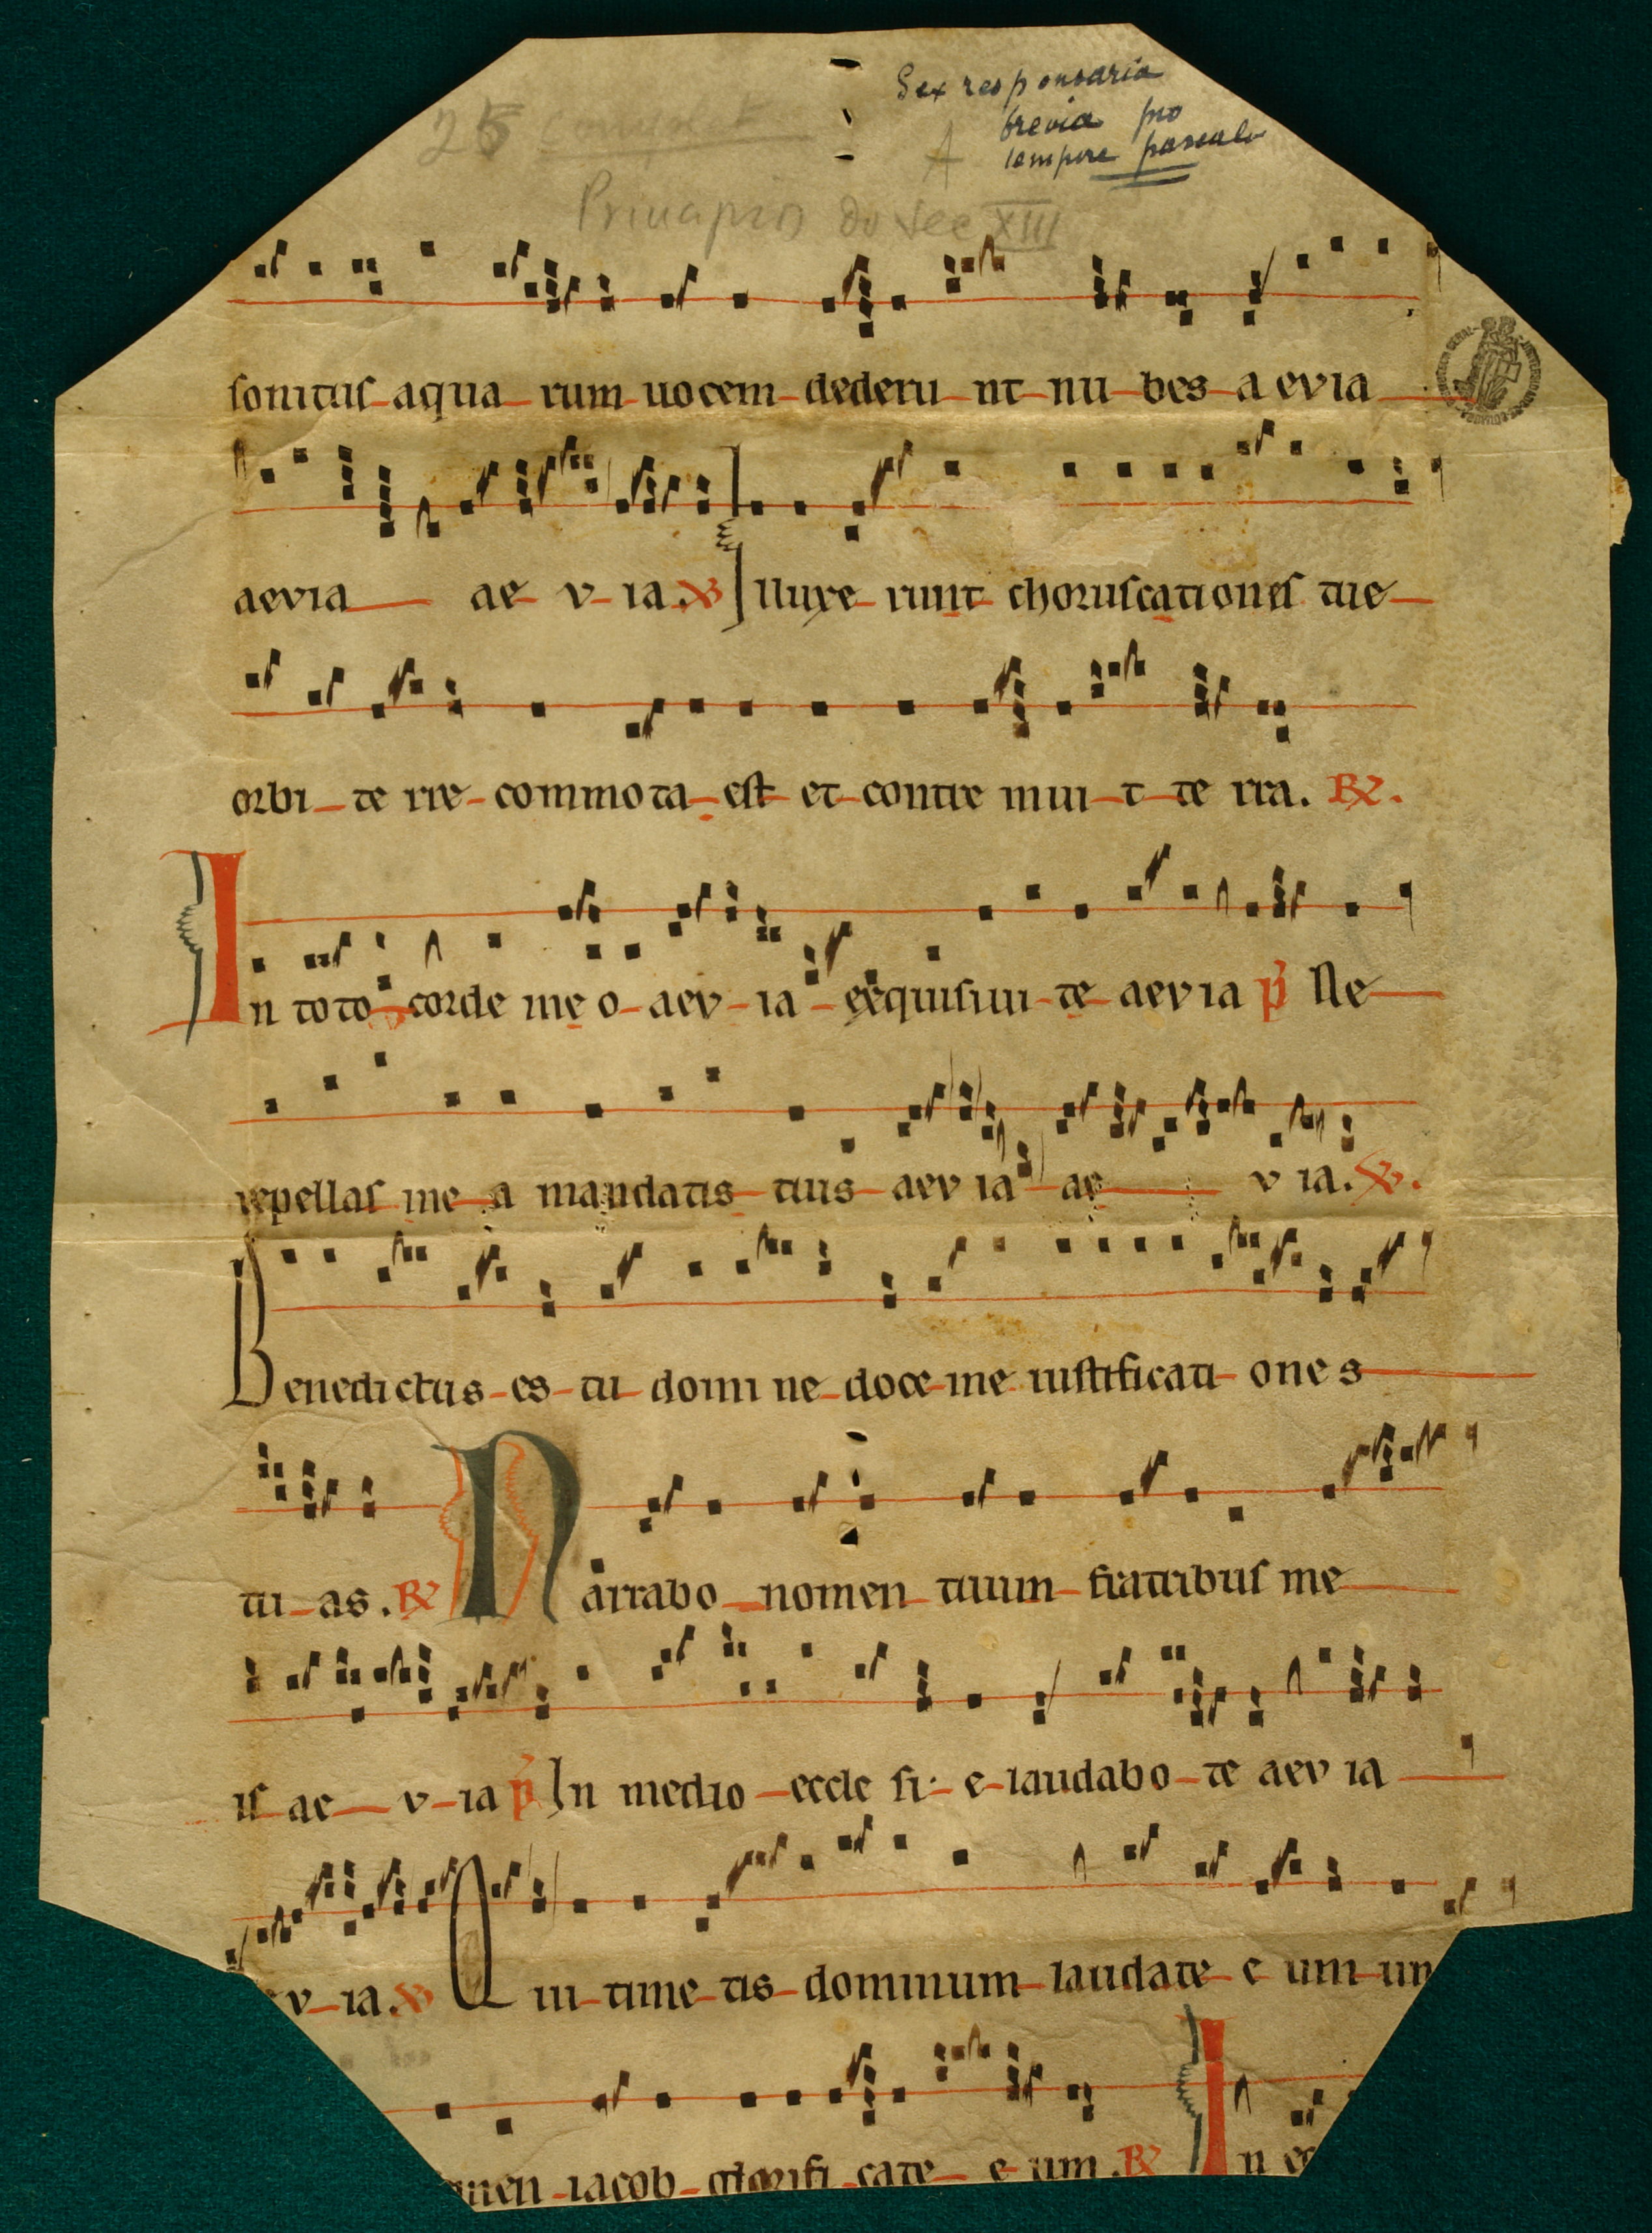 25
Sex responsaria
brevia pro
A tempore pascale
Principios do sec XIII
sonitus aqua rum uocem dederu nt nu bes a evia
aevia ae v ia. V Illuxe runt choruscationes tue
orbi te rre commota est et contre mui t te rra. R.
In toto corde me o aev ia exquisiui te aevia p Ne
repellas me a mandatis tuis aev ia ae v ia. V.
Benedictus es tu domi ne doce me iustificati ones
tu as. R Narrabo nomen tuum fratribus me
is ae v ia p In medio eccle si e laudabo te aev ia
v ia. V Qui time tis dominum laudate e um un
men iacob glorifi cate e um. R In ec